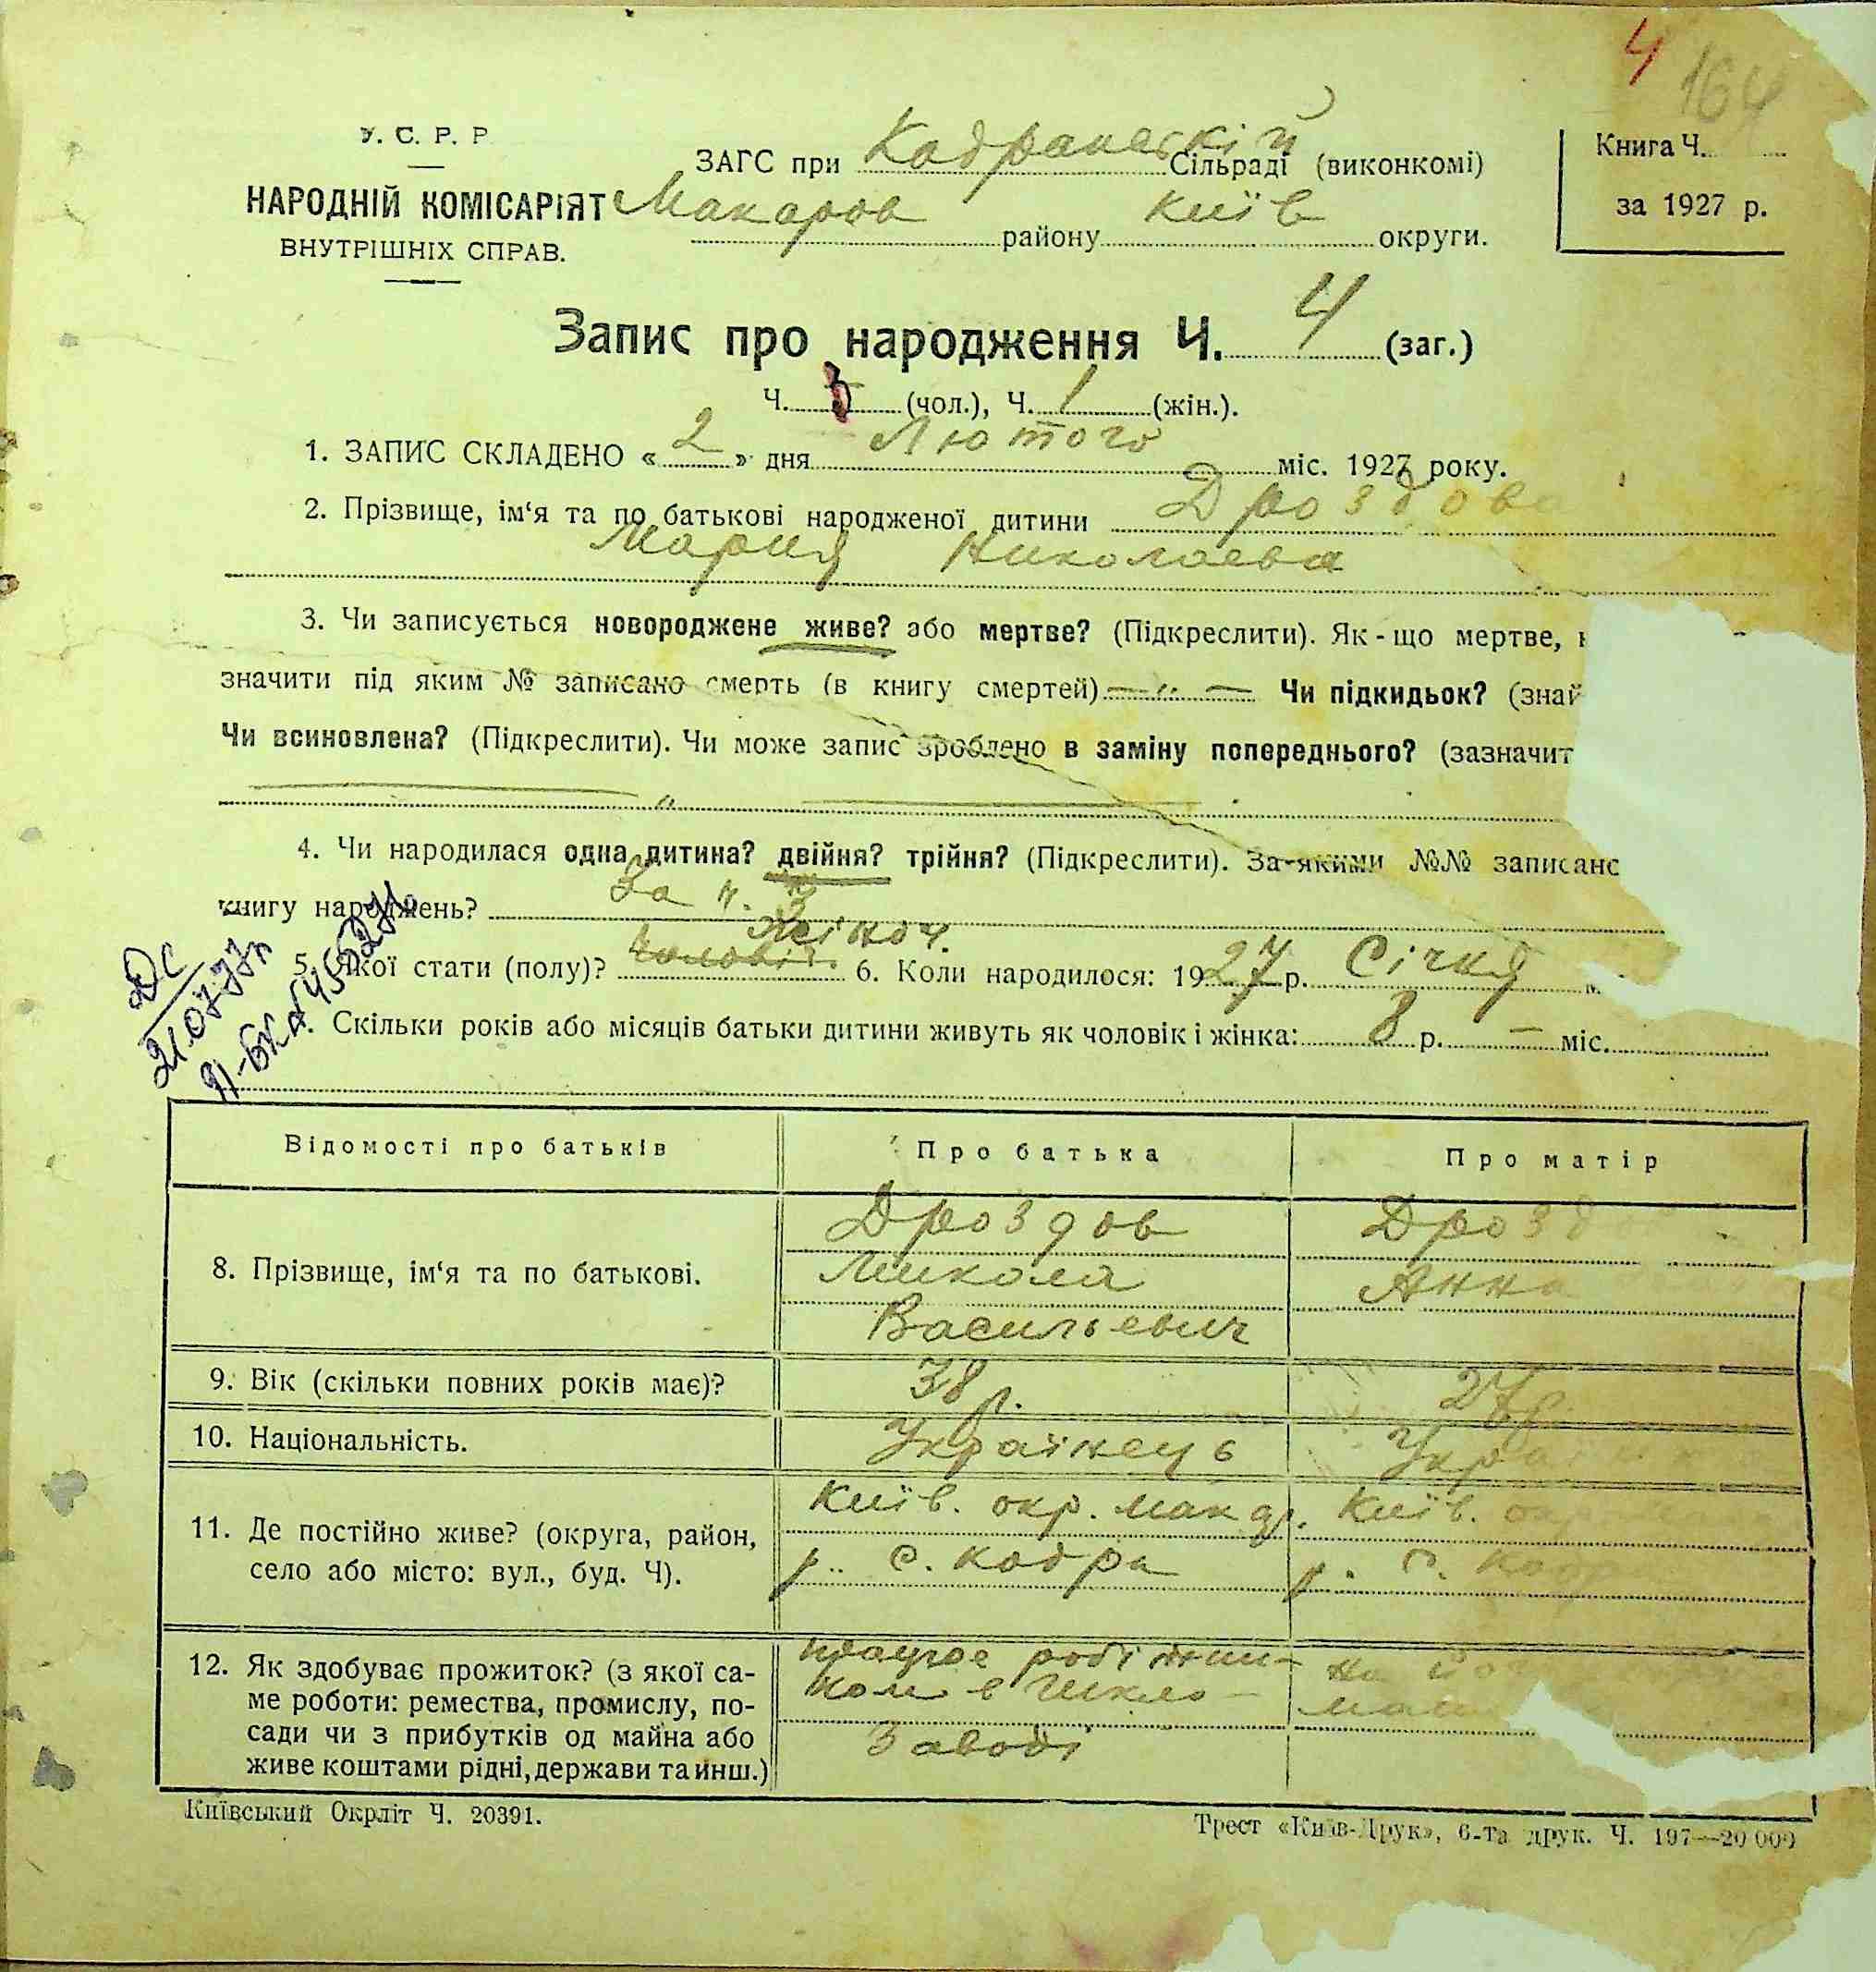 4 164
У. С. Р. Р.
НАРОДНІЙ КОМІСАРІЯТ
ВНУТРІШНІХ СПРАВ.
ЗАГС при Кодранескій Сільраді (виконкомі)
Макаров району Київ округи.
Книга Ч.
за 1927 р.
Запис про народження Ч. 4 (заг.)
Ч. (чол.), Ч. 1 (жін.).
1. ЗАПИС СКЛАДЕНО « 2 » дня Лютого міс. 1927 року.
2. Прізвище, ім‘я та по батькові народженої дитини Дроздова
Мария Николаева
3. Чи записується новороджене живе? або мертве? (Підкреслити). Як-що мертве,
значити під яким № записано смерть (в книгу смертей) — „ — Чи підкидьок? (знай
Чи всиновлена? (Підкреслити). Чи може запис зроблено в заміну попереднього? (зазначит
„
4. Чи народилася одна дитина? двійня? трійня? (Підкреслити). За-якими №№ записано
книгу народжень? За ч. 3
Жіноч.
5. Якої стати (полу)? чоловіч. 6. Коли народилося: 1927 р. Січня м.
. Скільки років або місяців батьки дитини живуть як чоловік і жінка: 8 р. — міс.
Відомості про батьків Про батька Про матір
8. Прізвище, ім‘я та по батькові.
Дроздов
Микола
Васильевич
Дрозд
Анна
9. Вік (скільки повних років має)? 38 р. 27 р.
10. Національність. Українець Укра
11. Де постійно живе? (округа, район,
село або місто: вул., буд. Ч).
Київ. окр. Макар.
р. с. Кодра
Київ. окр.
р. с. Кодра
12. Як здобуває прожиток? (з якої са-
ме роботи: ремества, промислу, по-
сади чи з прибутків од майна або
живе коштами рідні, держави та инш.)
працює робітни-
ком в Шкло-
Заводі
на
Київський Окрліт Ч. 20391.
Трест «Київ-Друк», 6-та друк. Ч. 197—20 000